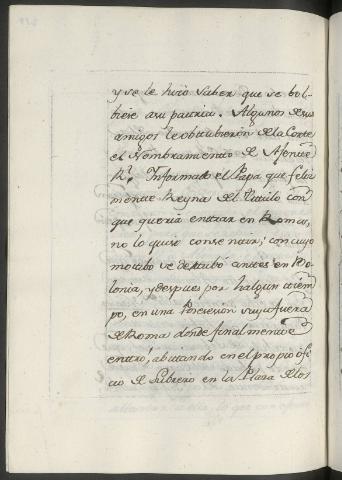 y se le hizo saber que se bol-
biese a su patria. Algunos de sus
amigos le obtubieron de la Corte
el Nombramiento de Asente
Rl. Informado el Papa que feliz
mente Reyna del Titulo con
que queria entrar en Roma,
no lo quiso consentir; con cuyo
motibo se detubó antes en Bo-
lonia, y despues por halgun tiem-
po, en una Posesion suya fuera
de Roma donde finalmente
entró, abitando en el propio ofi-
cio de Librero en la Plaza de los